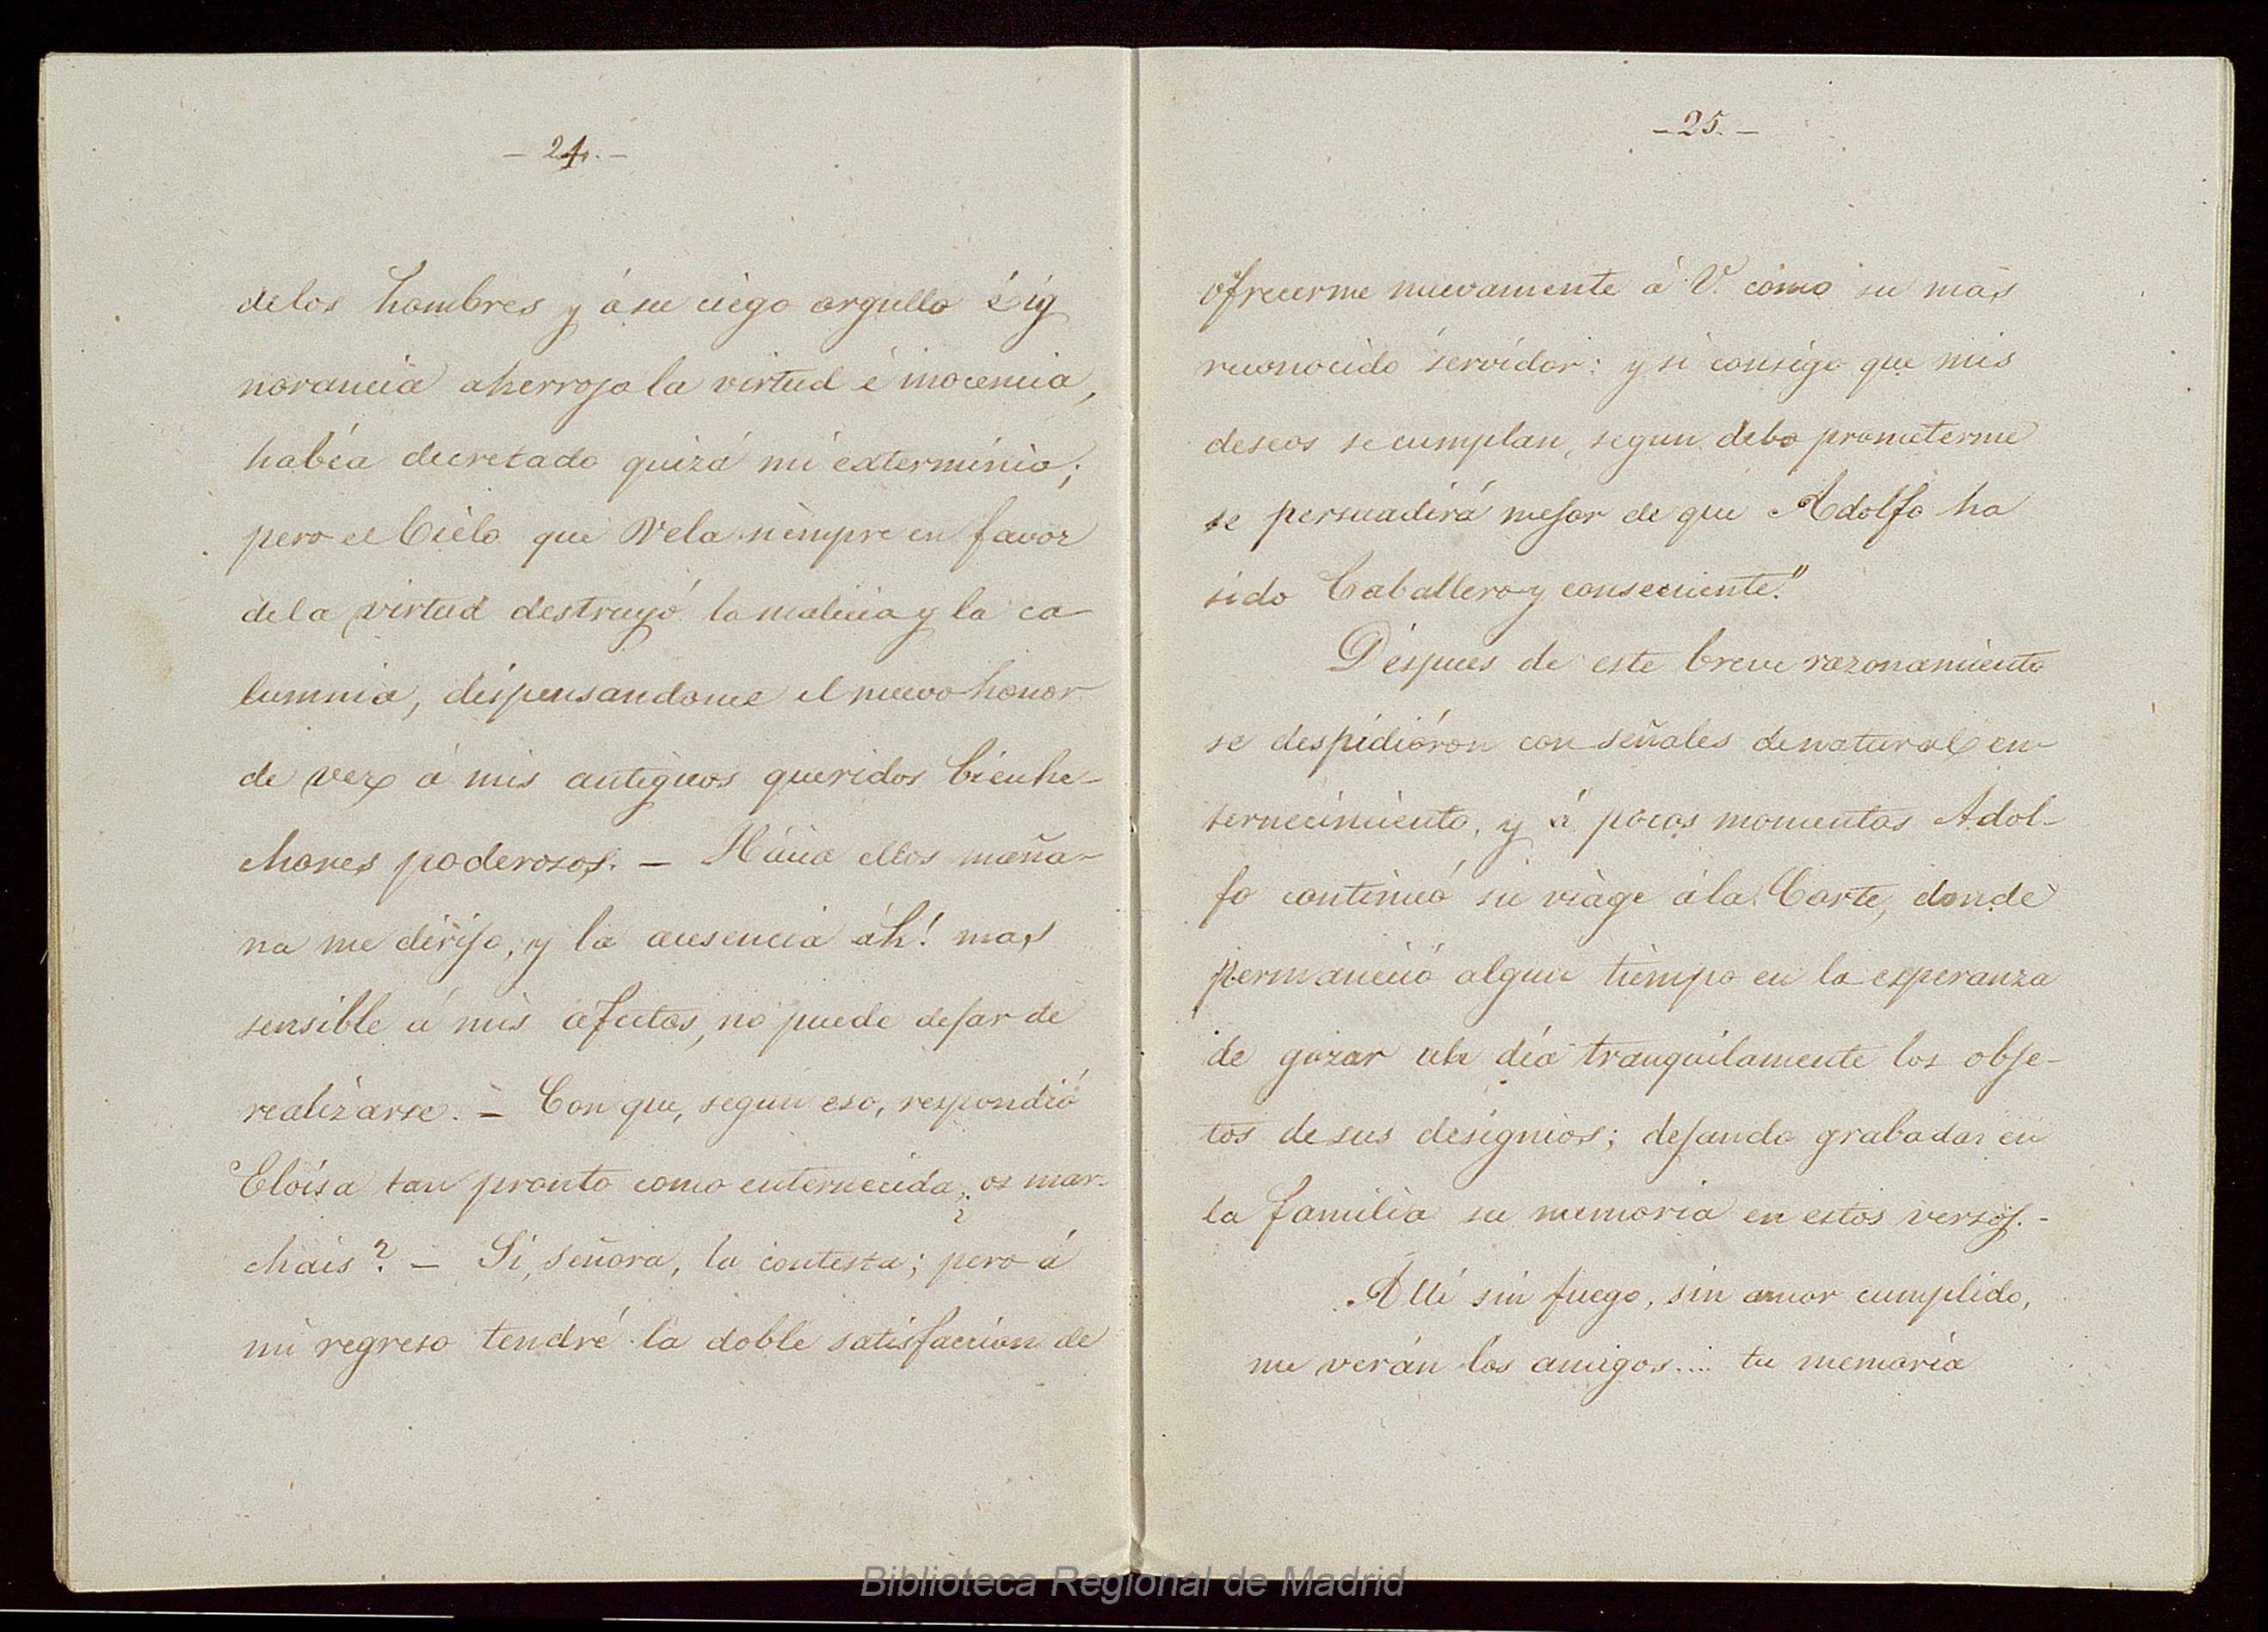 - 24. -
de los hombres y á su ciego orgullo é ig
norancia aherroja la virtud é inocencia,
había decretado quizá mi exterminio;
pero el Cielo que Vela siempre en favor
de la virtud destruyó la malicia y la ca-
lumnia, dispensandome el nuevo honor
de ver á mis antiguos queridos bienhe-
chores poderosos. - Hácia ellos maña-
na me dirijo; y la ausencia áh! mas
sensible á mis afectos, no puede dejar de
realizarse. - Con que, segun eso, respondió
Eloísa tan pronto como enternecida, ¿os mar-
chais? - Si, señora, la contesta; pero á
mi regreso tendré la doble satisfaccion de
- 25. -
ofrecerme nuevamente á V. como su mas
reconocido servidor: y si consigo que mis
deseos se cumplan, segun debo prometerme
se persuadirá mejor de que Adolfo ha
sido Caballero y consecuente."
Despues de este breve razonamiento
se despidiéron con señales de natural en-
ternecimiento, y á pocos momentos Adol-
fo continuó su viage á la Corte, donde
permaneció algun tiempo en la esperanza
de gozar un dia tranquilamente los obje-
tos de sus designios; dejando grabada en
la familia su memoria en estos versos. -
Allí sin fuego, sin amor cumplido,
me verán los amigos.... tu memoria
Biblioteca Regional de Madrid